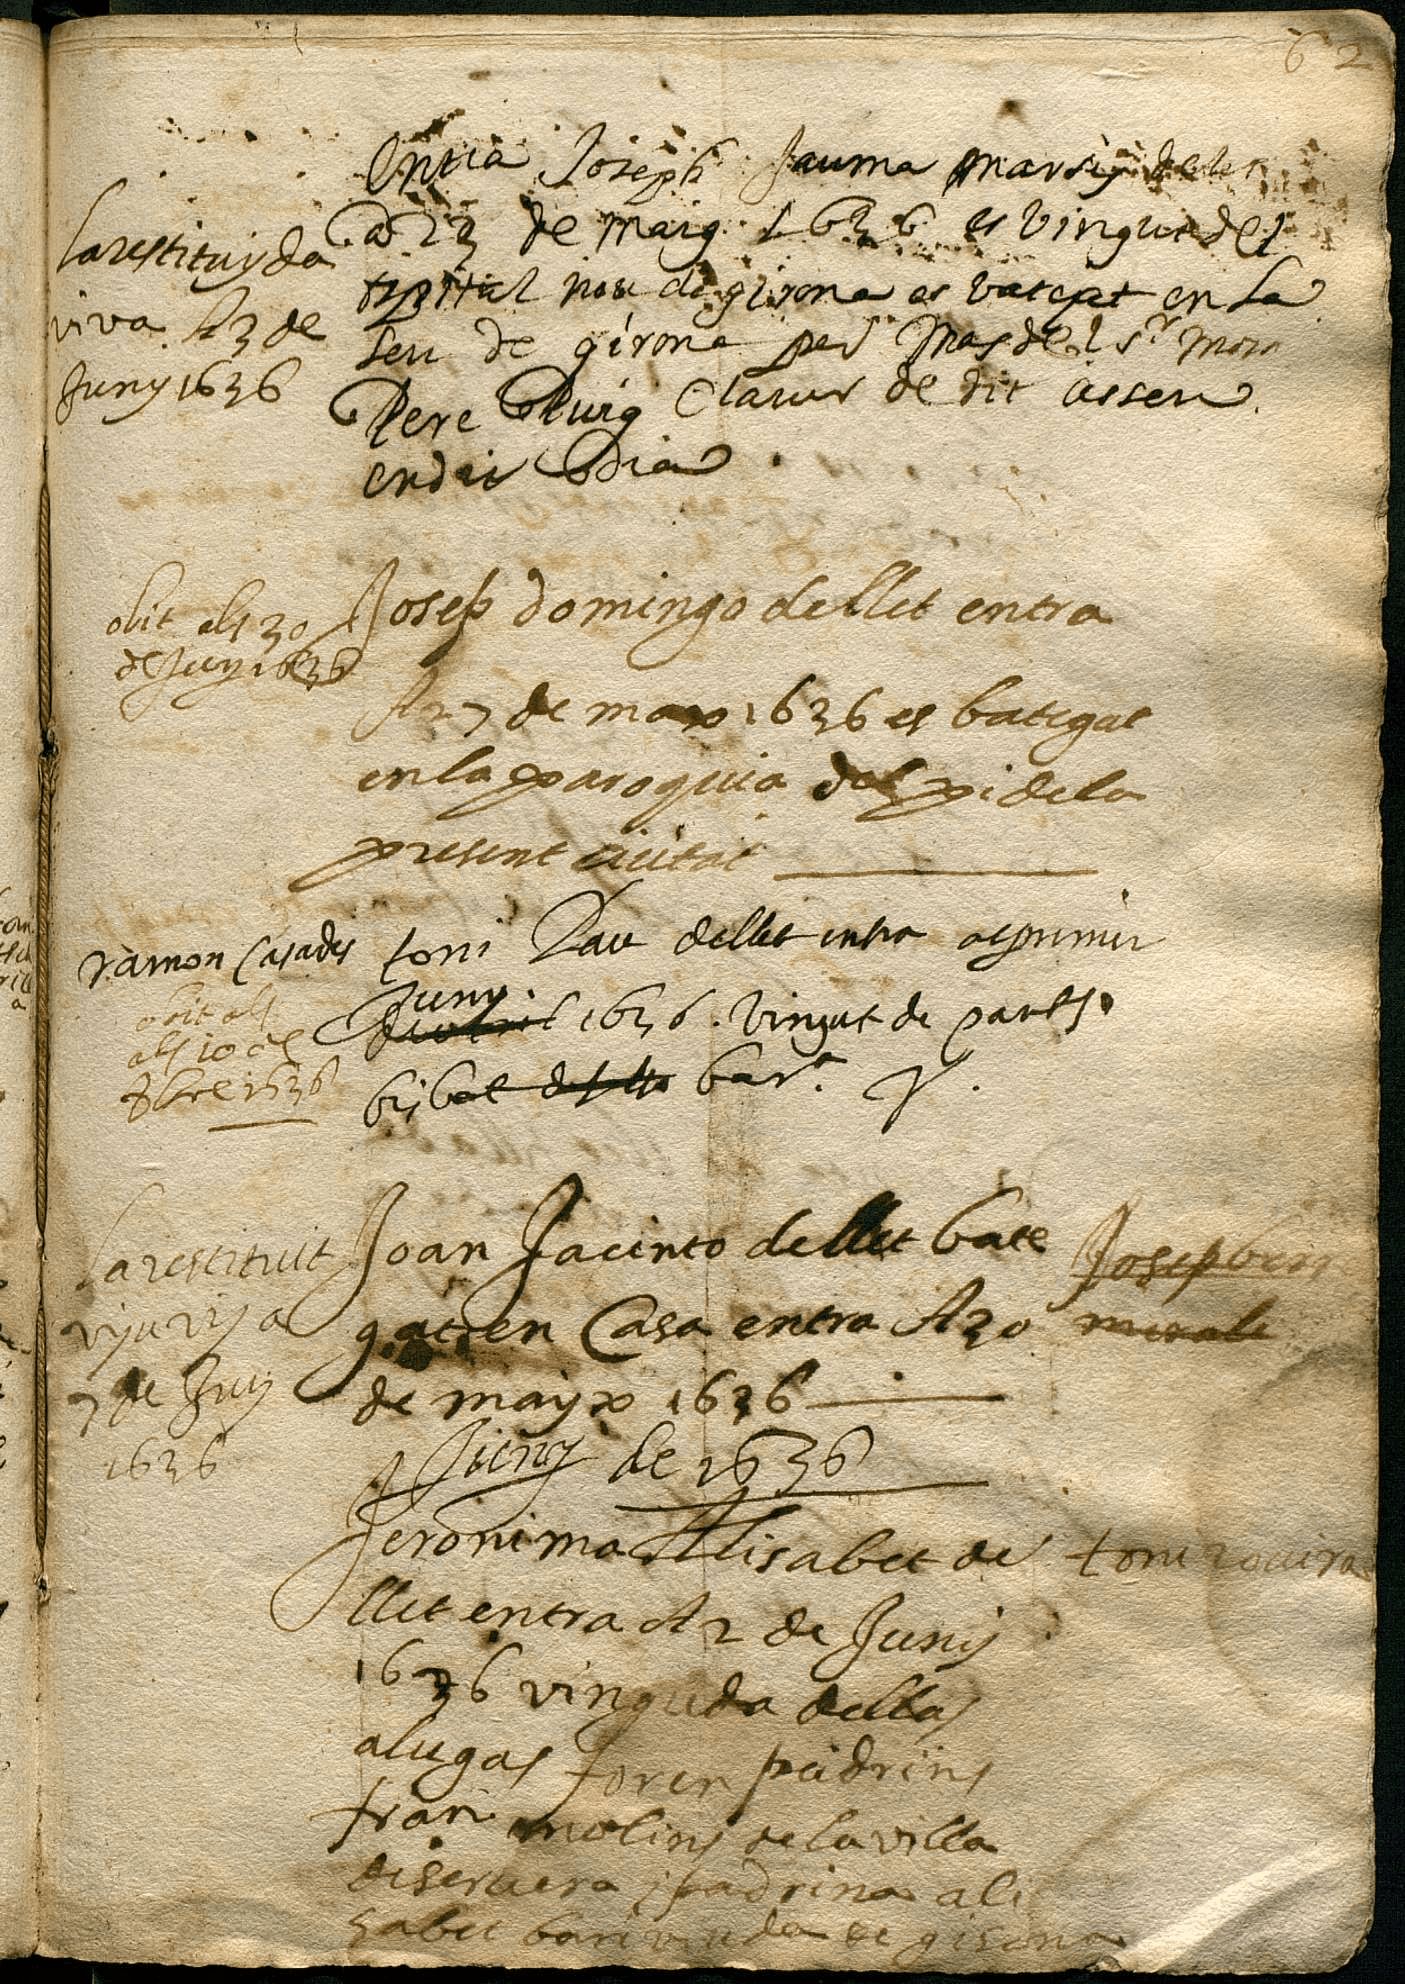 62
Entra Joseph Jauma Marsy dellet
a 23 de maig 1636 es vingut del
spital nou de girona es batejat en la
seu de girona per Mas del sr
Pere Puig Claver de dit asseu
en dit dia
la restituyda
viva A 3 de
Juny 1636
Josep domingo dellet entra
A 27 de maxo 1636 es bategat
en la paroquia del pi de la
present ciutat
obit als 30
de Juny 1636
toni Pau dellet entra al primer
Juny
1636. vingut de part
bisbat bar.a
ramon Casades
obit als
als 10 de
8bre 1636
Joan Jacinto dellet bate
gat en Casa entra A 30
de mayxo 1636
la restituit
viu vi a
7 de Juy
1636
Josep
Juny de 1636
Jeronima Elisabet de
llet entra A 2 de Juny
1636 vinguda de llas
alugas foren padrins
fran molins de la villa
de servera y padrina ali
sabet viuda de gisona
toni rovira